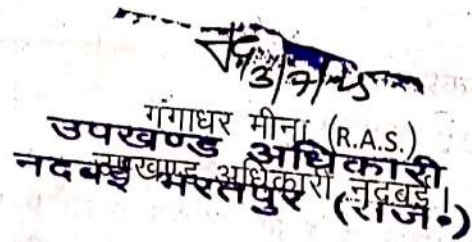 3/7/25
गंगाधर मीना (R.A.S.)
उपखण्ड अधिकारी
उपखण्ड अधिकारी नदबई
नदबई भरतपुर (राज०)